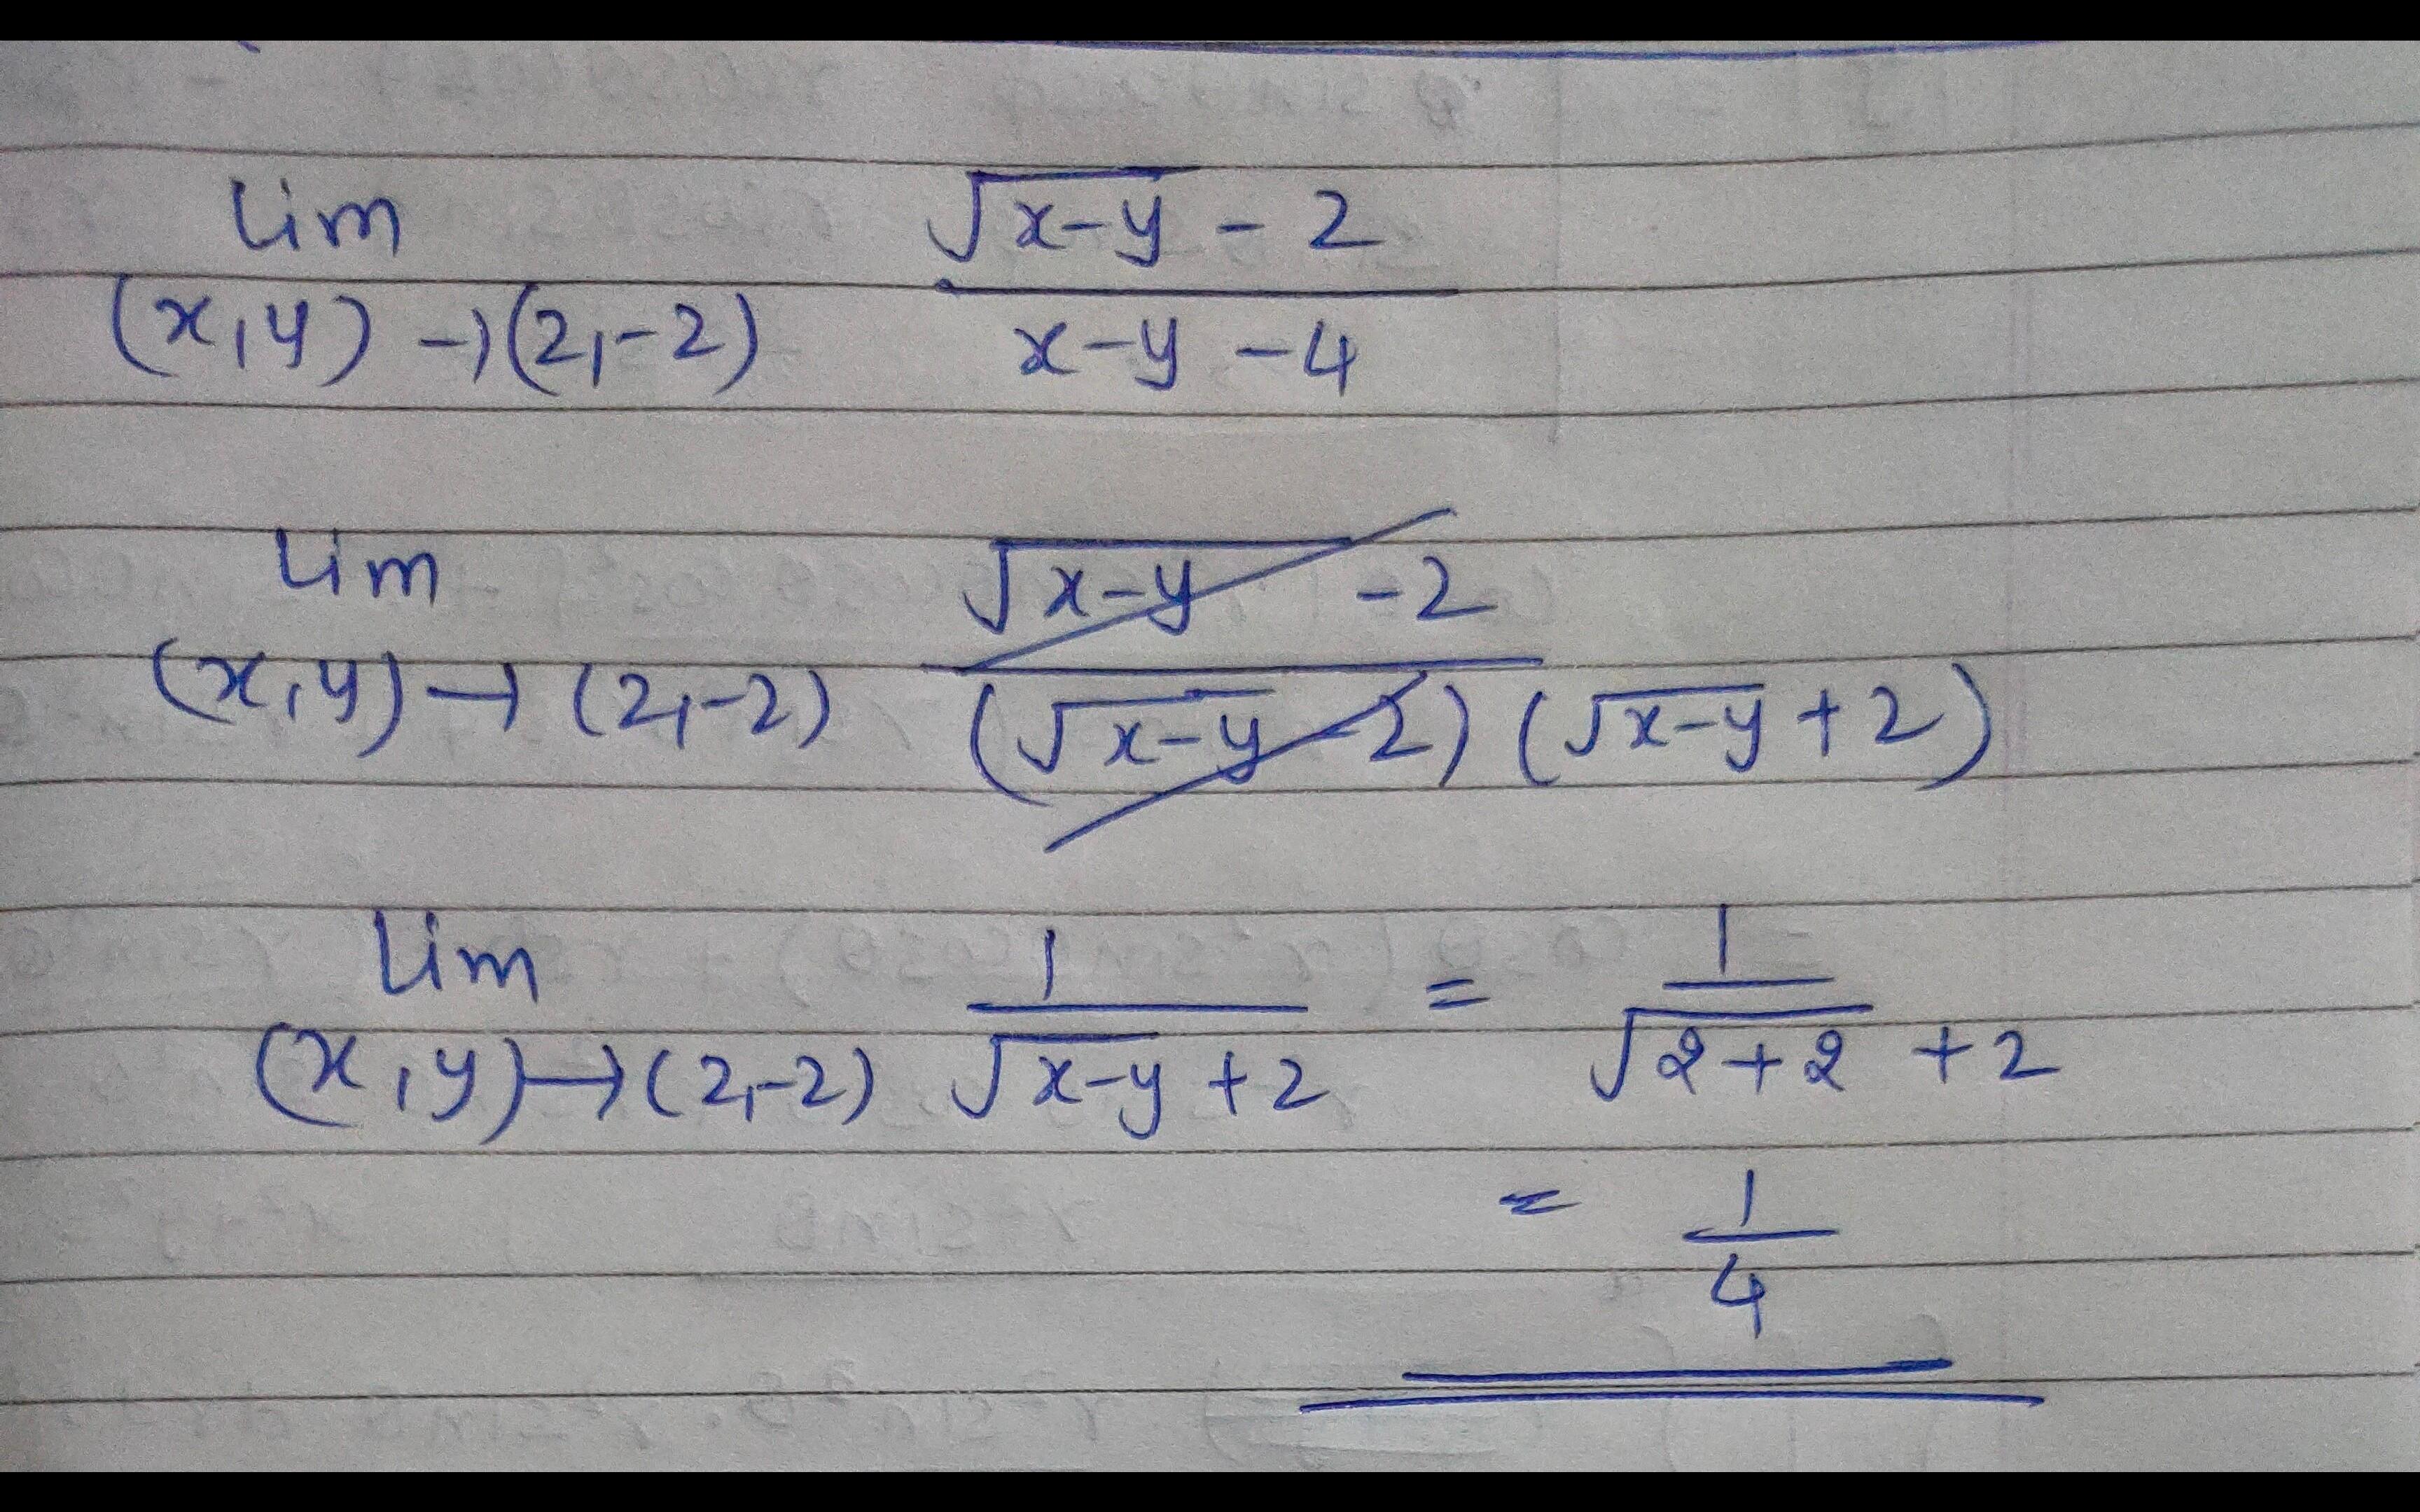 lim √x-y - 2
(x,y) → (2,-2) x-y - 4
lim √x-y - 2
(x,y) → (2,-2) (√x-y - 2) (√x-y + 2)
lim 1 = 1
(x,y) → (2,-2) √x-y + 2 √2+2 + 2
= 1
4